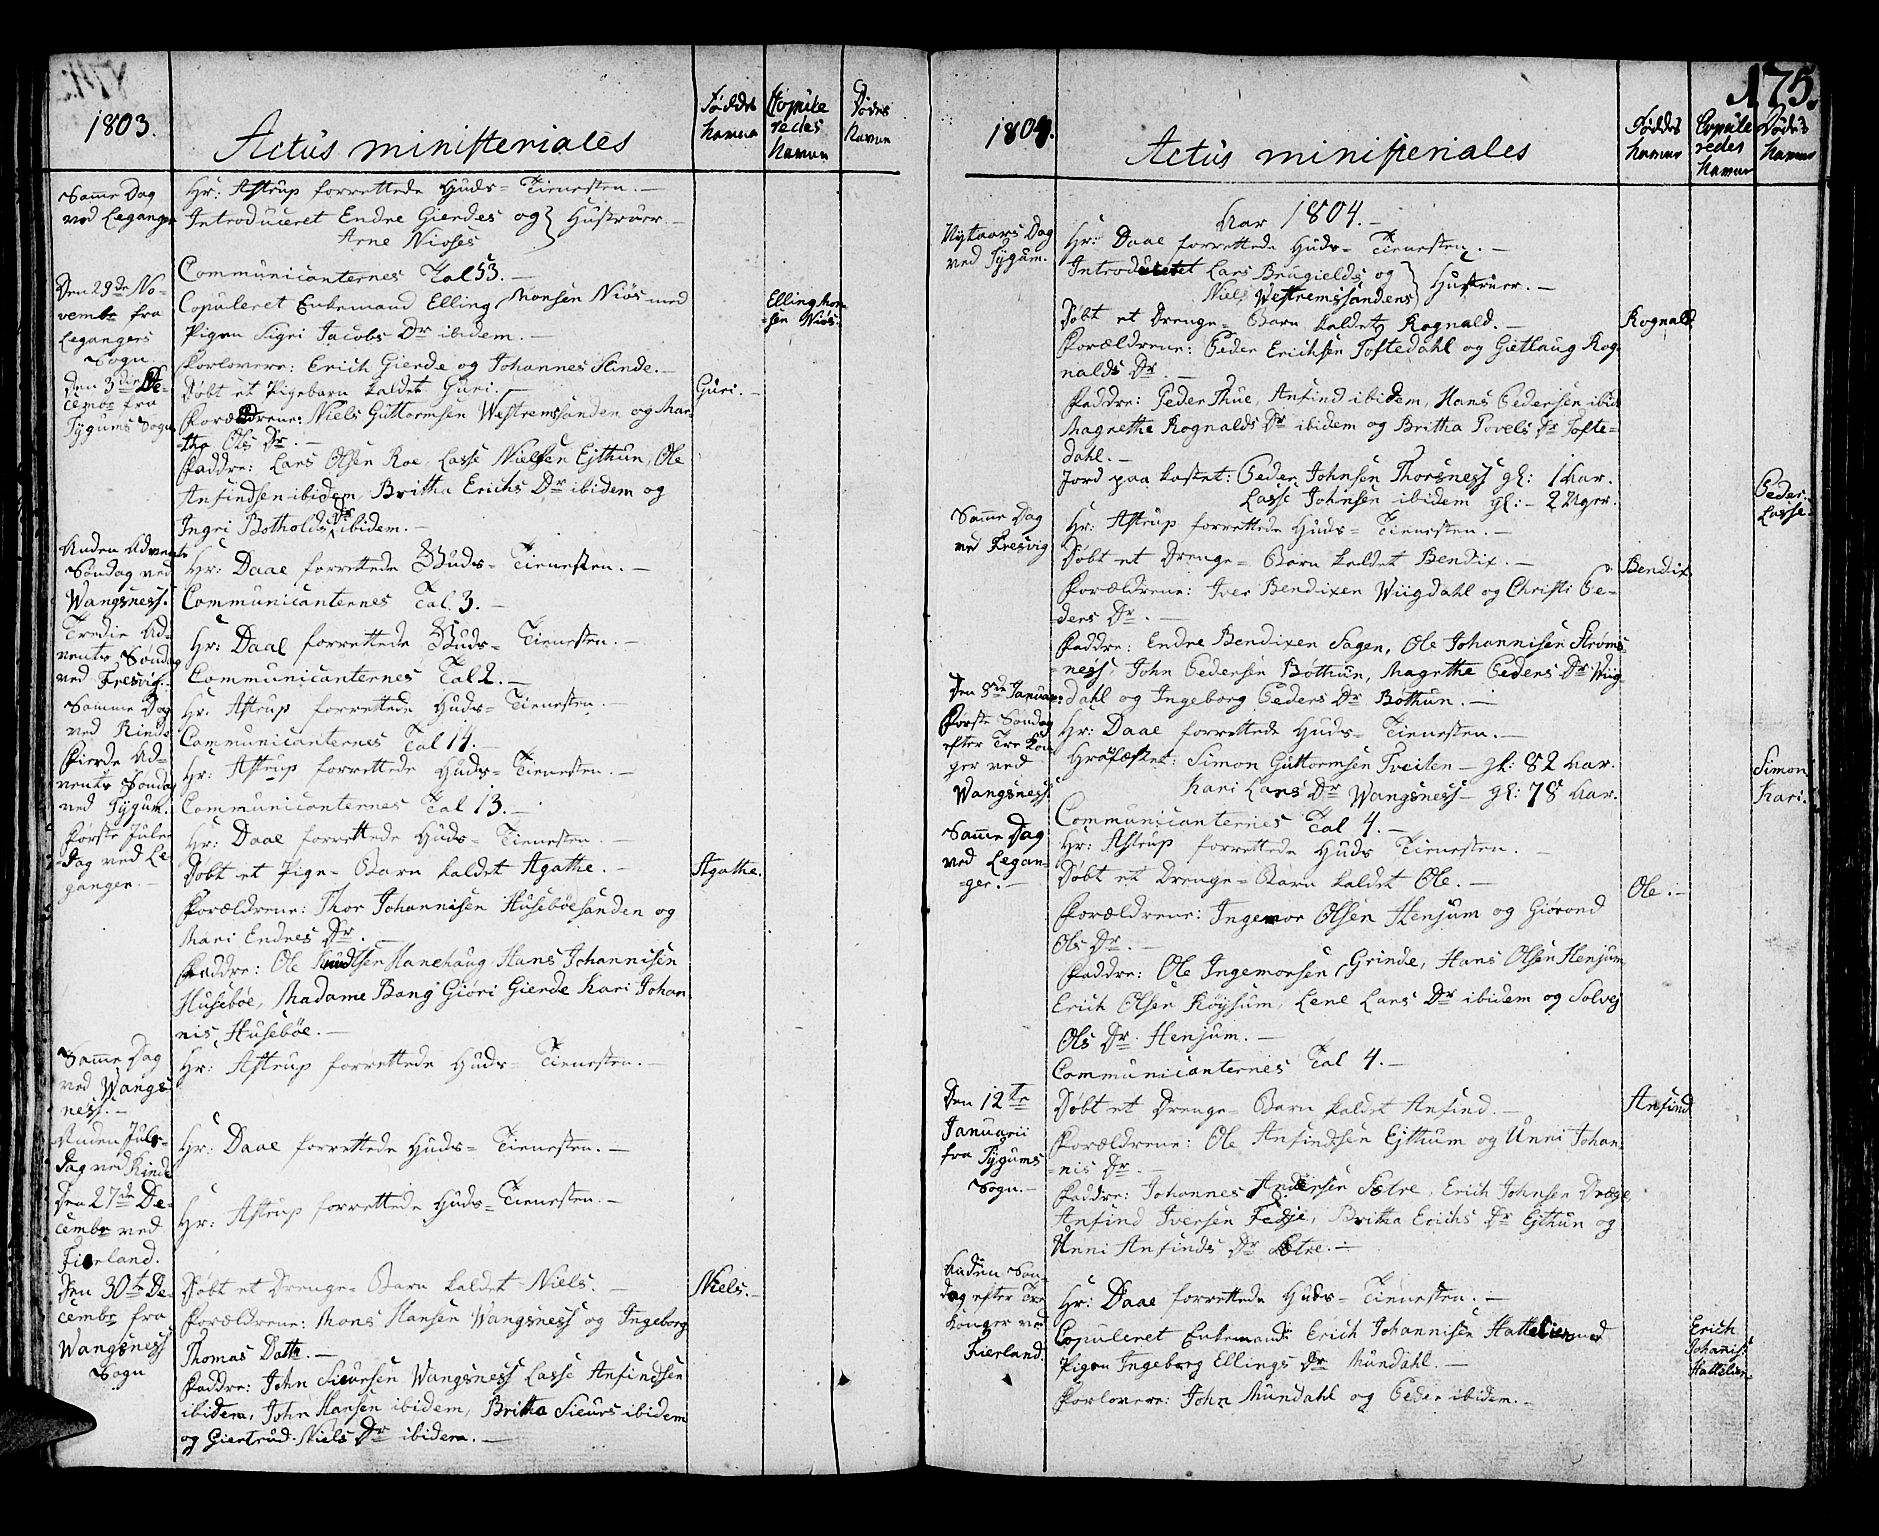 1803.
Actus ministeriales
Fødde
havne
Copule
redes
Navne
Dødes
Navne
Samme Dag
ved Leganger
Hr: Astrup forrettede Guds- Tienesten.-
Introduceret Endre Gierdes og } Hustruer.-
Arne Nioses
Communicanternes Tal 53.-
Den 29de No-
vembr fra
Legangers
Sogn.
Copuleret Enkemand Elling Monsen Niøs med
Pigen Sigri Jacobs Dr ibidem.-
Forlovere: Erich Gierde og Johannes Slinde.-
Elling Mon-
sen Niøs.
Den 3die De-
cembr fra
Tygums Sogn
Døbt et Pigebarn kaldet Guri.-
Forældrene: Niels Guttormsen Westremssanden og Mar-
tha Ols Dr.-
Faddre: Lars Olsen Roe, Lasse Nielsen Ejthun, Ole
Anfindsen ibidem, Britha Erichs Dr ibidem og
Ingri Botholds Dr ibidem.-
Guri.-
Anden Advents
Søndag ved
Wangsness.
Hr: Daae forrettede Guds- Tienesten.-
Communicanternes Tal 3.-
Tredie Ad-
vents Søndag
ved Fresvig.
Hr: Daae forrettede Guds- Tienesten.-
Communicanternes Tal 2.-
Samme Dag
ved Rinde
Hr: Astrup forrettede Guds- Tienesten.-
Communicanternes Tal 14.-
Fierde Ad-
vents Søndag
ved Tygum.
Hr: Astrup forrettede Guds- Tienesten.-
Communicanternes Tal 13.-
Første Jule
Dag ved Le-
ganger.-
Hr: Daae forrettede Guds- Tienesten.-
Døbt et Pige- Barn kaldet Agathe.-
Forældrene: Thor Johannisen Husebøesanden og
Mari Endres Dr.-
Faddre: Ole Knudsen Hanehaug Hans Johannisen
Husebøe, Madame Bang Giøri Gierde Kari Johan
nis Husebøe.-
Agathe.
Samme Dag
ved Wangs
ness.-
Hr: Astrup forrettede Guds- Tienesten.-
Anden Jule-
dag ved Rinde
Hr: Daae forrettede Guds- Tienesten.-
Den 27de De-
cembr ved
Fierland.
Hr: Astrup forrettede Guds- Tienesten.-
Den 30te De-
cembr fra
Wangsness
Sogn
Døbt et Drenge- Barn kaldet Niels.-
Forældrene: Mons Hansen Wangsness og Ingeborg
Thomas Datter.-
Faddre: John Siursen Wangsness Lasse Anfindsen
ibidem, John Hansen ibidem, Britha Sieurs ibidem
og Giertrud Niels Dr ibidem.-
Niels.-
175.
1804.
Actus ministeriales
Føddes
havne
Copule
redes
Navne
Dødes
havne
Aar 1804.-
Nytaars Dag
ved Tygum.
Hr: Daae forrettede Guds- Tienesten.-
Introduceret Lars Brugjelds og } Hustruer.-
Niels Westremssandens
Døbt et Drenge- Barn kaldet Rognald.-
Forældrene: Peder Erichsen Toftedahl og Gietlaug Rog-
nalds Dr.-
Faddre: Peder Thue, Anfind ibidem, Hans Pedersen ibid
Magrethe Rognalds Dr ibidem og Britha Povels Dr Tofte-
dahl.-
Jord paa kastet: Peder Johnsen Thorsness gl: 1 Aar.
Lasse Johnsen ibidem gl:- 2 Uger.
Rognald
Peder.
Lasse.
Samme Dag
ved Fresvig
Hr: Astrup forrettede Guds- Tienesten.-
Døbt et Drenge- Barn kaldet Bendix.-
Forældrene: Iver Bendixen Wiigdahl og Christi Pe-
ders Dr.-
Faddre: Endre Bendixen Sagen, Ole Johannisen Strøms-
ness, John Pedersen Bøthun, Magrethe Peders Dr Wiig-
dahl og Ingeborg Peders Dr Bøthun.-
Bendix.
Den 8de Januar:
Første Søndag
efter Tre Kon-
ger ved
Wangsness.
Hr: Daae forrettede Guds- Tienesten.-
Grafæstet: Simon Guttormsen Tveiten - gl: 82 Aar.
Kari Lars Dr Wangsness - gl: 78 Aar.
Communicanternes Tal 4.-
Simon
Kari.
Samme Dag
ved Legan-
ger.-
Hr: Astrup forrettede Guds Tienesten.-
Døbt et Drenge- Barn kaldet Ole.-
Forældrene: Ingemor Olsen Henjum og Giørond
Ols Dr.-
Faddre: Ole Ingemorsen Grinde, Hans Olsen Henjum,
Erich Olsen Røysum, Lene Lars Dr ibidem og Solvej
Ols Dr Henjum.-
Communicanternes Tal 4.-
Ole.-
Den 12te
Januarii
fra Tygums
Sogn.-
Døbt et Drenge- Barn kaldet Anfind.-
Forældrene: Ole Anfindsen Ejthum og Unni Johan-
nis Dr.-
Faddre: Johannes Andersen Sætre, Erich Johnsen Dræge
Anfind Iversen Fedje, Britha Erichs Dr Ejthun og
Unni Anfinds Dr Sætre.-
Anfind
Anden Søn-
dag efter Tre
Konger ved
Fierland.
Hr: Daae forrettede Guds- Tienesten.-
Copuleret Enkemand Erich Johannisen Hattelien med
Pigen Ingeborg Ellings Dr Mundahl.-
Forlovere: John Mundahl og Peder ibidem.-
Erich
Johanis:
Hattelien.